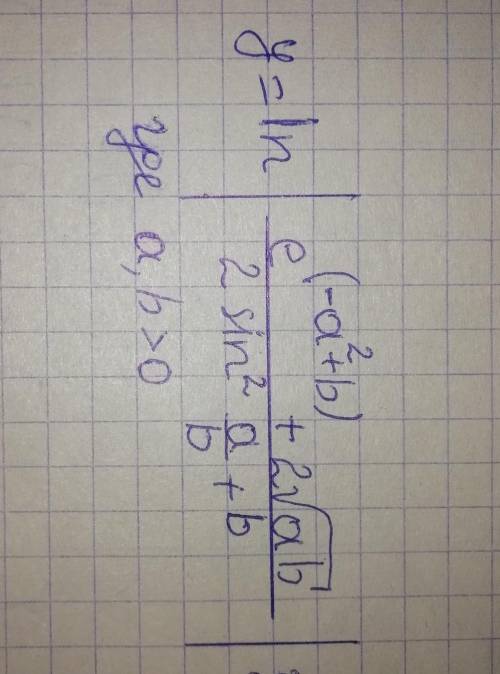 y = ln | (e^(-a²+b) + 2√ab) / (2 sin² a/b + b) |
где a, b > 0